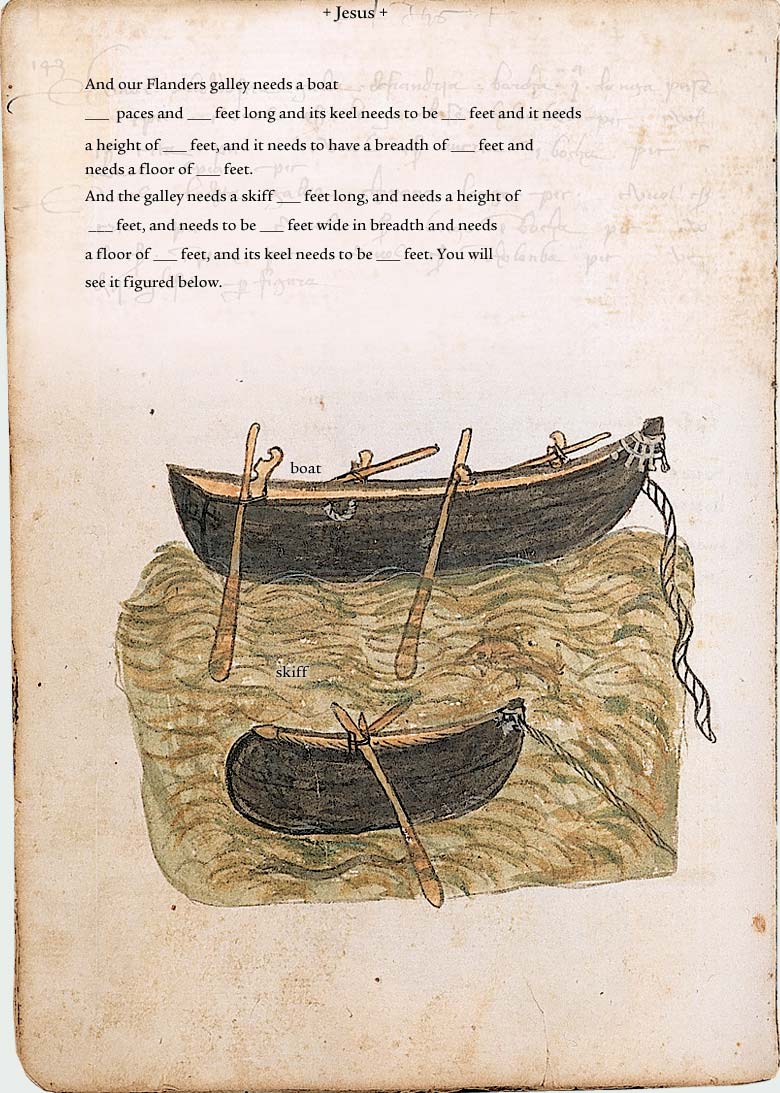 + Jesus +
And our Flanders galley needs a boat
___ paces and ___ feet long and its keel needs to be ___ feet and it needs
a height of ___ feet, and it needs to have a breadth of ___ feet and
needs a floor of ___ feet.
And the galley needs a skiff ___ feet long, and needs a height of
___ feet, and needs to be ___ feet wide in breadth and needs
a floor of ___ feet, and its keel needs to be ___ feet. You will
see it figured below.
boat
skiff